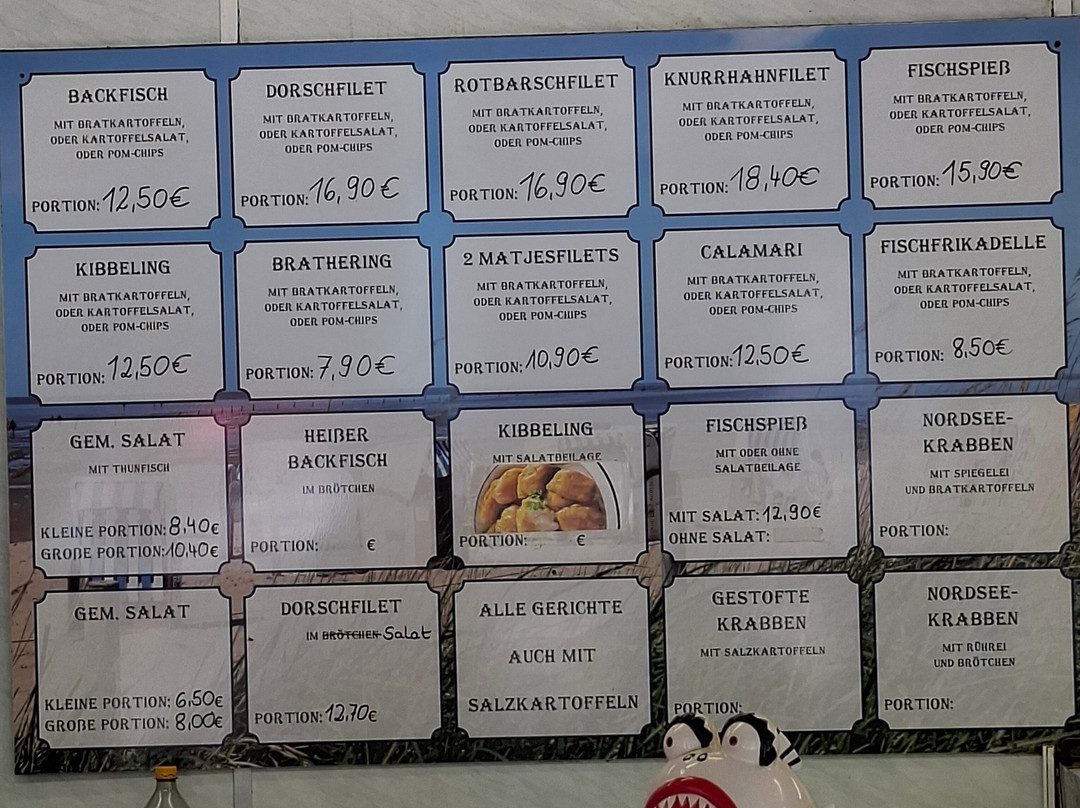 BACKFISCH
MIT BRATKARTOFFELN,
ODER KARTOFFELSALAT,
ODER POM-CHIPS
PORTION: 12,50€
DORSCHFILET
MIT BRATKARTOFFELN,
ODER KARTOFFELSALAT,
ODER POM-CHIPS
PORTION: 16,90€
ROTBARSCHFILET
MIT BRATKARTOFFELN,
ODER KARTOFFELSALAT,
ODER POM-CHIPS
PORTION: 16,90€
KNURRHAHNFILET
MIT BRATKARTOFFELN,
ODER KARTOFFELSALAT,
ODER POM-CHIPS
PORTION: 18,40€
FISCHSPIEß
MIT BRATKARTOFFELN,
ODER KARTOFFELSALAT,
ODER POM-CHIPS
PORTION: 15,90€
KIBBELING
MIT BRATKARTOFFELN,
ODER KARTOFFELSALAT,
ODER POM-CHIPS
PORTION: 12,50€
BRATHERING
MIT BRATKARTOFFELN,
ODER KARTOFFELSALAT,
ODER POM-CHIPS
PORTION: 7,90€
2 MATJESFILETS
MIT BRATKARTOFFELN,
ODER KARTOFFELSALAT,
ODER POM-CHIPS
PORTION: 10,90€
CALAMARI
MIT BRATKARTOFFELN,
ODER KARTOFFELSALAT,
ODER POM-CHIPS
PORTION: 12,50€
FISCHFRIKADELLE
MIT BRATKARTOFFELN,
ODER KARTOFFELSALAT,
ODER POM-CHIPS
PORTION: 8,50€
GEM. SALAT
MIT THUNFISCH
KLEINE PORTION: 8,40€
GROßE PORTION: 10,40€
HEIßER
BACKFISCH
IM BRÖTCHEN
PORTION: €
KIBBELING
MIT SALATBEILAGE
PORTION: €
FISCHSPIEß
MIT ODER OHNE
SALATBEILAGE
MIT SALAT: 12,90€
OHNE SALAT:
NORDSEE-
KRABBEN
MIT SPIEGELEI
UND BRATKARTOFFELN
PORTION:
GEM. SALAT
KLEINE PORTION: 6,50€
GROßE PORTION: 8,00€
DORSCHFILET
IM BRÖTCHEN Salat
PORTION: 12,70€
ALLE GERICHTE
AUCH MIT
SALZKARTOFFELN
GESTOFTE
KRABBEN
MIT SALZKARTOFFELN
PORTION:
NORDSEE-
KRABBEN
MIT RÜHREI
UND BRÖTCHEN
PORTION: